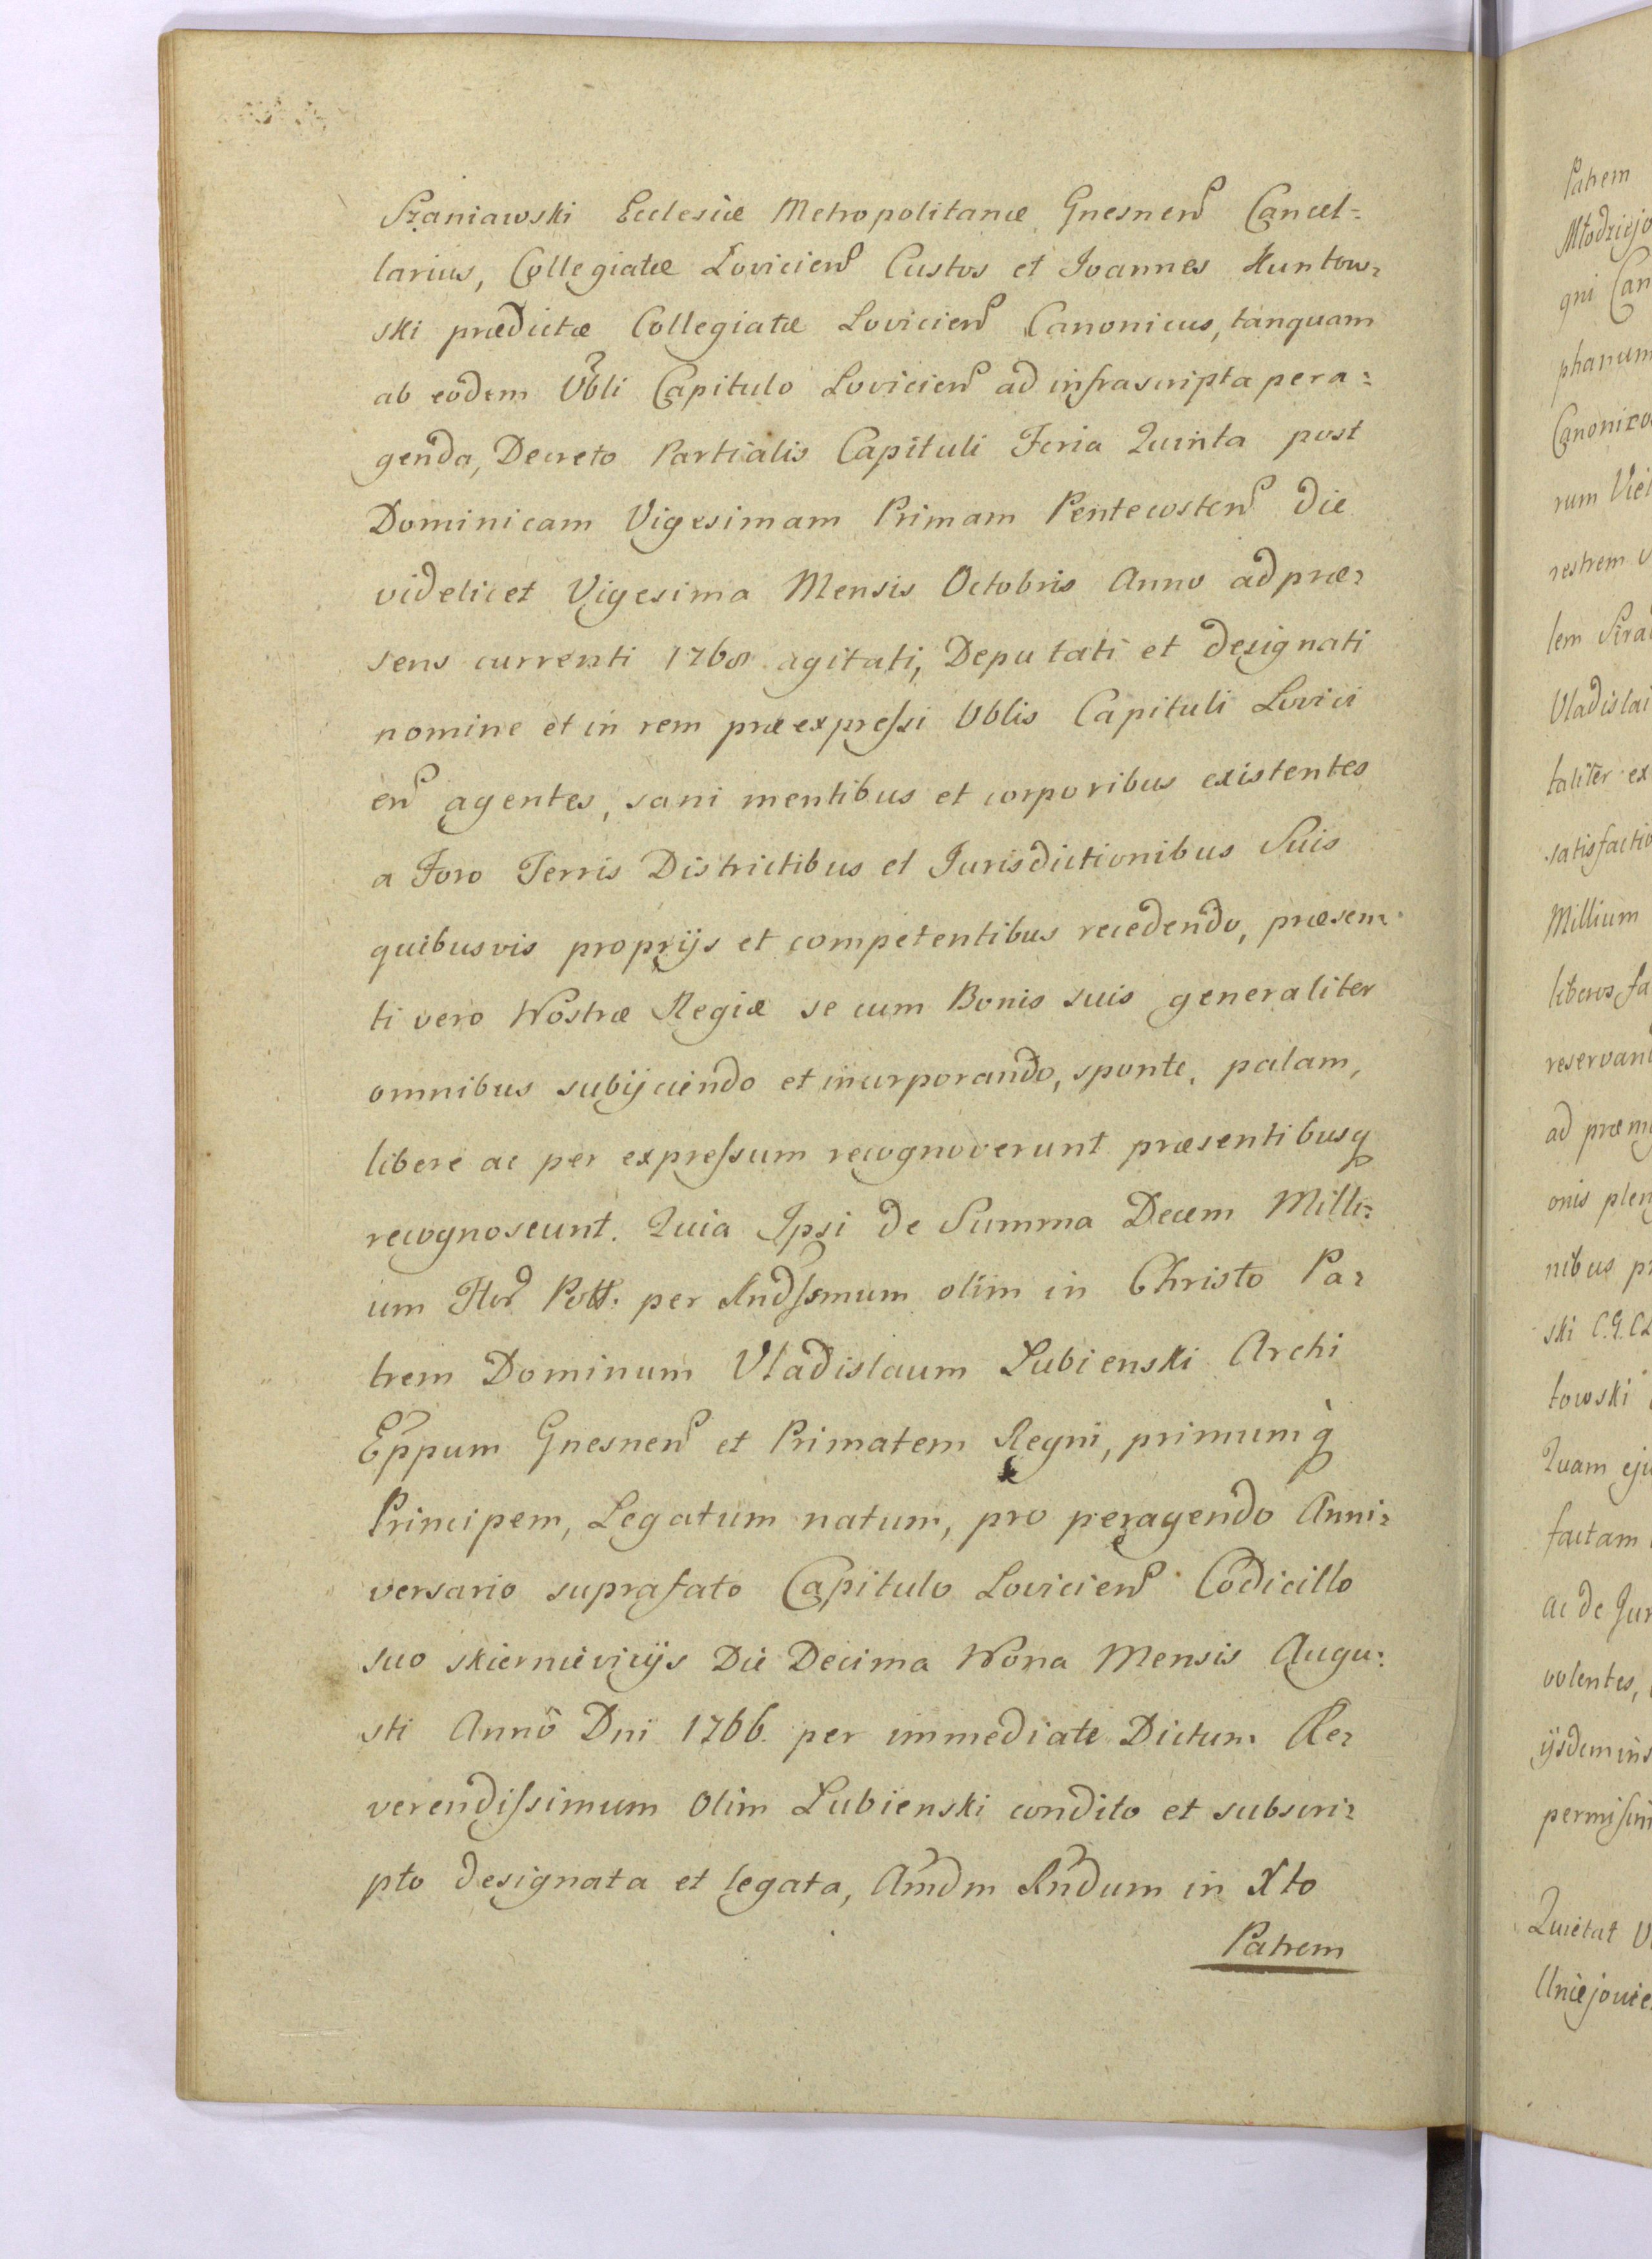 Szaniawski Ecclesiæ Metropolitanæ Gnesnen Cancel=
larius, Collegiatæ Lovicien Custos et Joannes Kuntow=
ski prædictæ Collegiatæ Lovicien Canonicus, tanquam
ab eodem Vbli Capitulo Lovicien ad infrascripta pera=
genda, Decreto Partialis Capituli Feria Quinta post
Dominicam Vigesimam Primam Pentecosten die
videlicet Vigesima Mensis Octobris Anno ad præ=
sens currenti 1768 agitati, Deputati et designati
nomine et in rem præexpreſsi Vblis Capituli Lovici
en agentes, sani mentibus et corporibus existentes
a Foro Terris Districtibus et Jurisdictionibus Suis
quibusvis proprijs et competentibus recedendo, præsen=
ti vero Nostræ Regiæ se cum Bonis suis generaliter
omnibus subijciendo et incorporando, sponte, palam,
libere ac per expreſsum recognoverunt præsentibusq
recognoscunt. Quia Ipsi de Summa Decem Milli=
um Flor Poll: per Rndſsmum olim in Christo Pa=
trem Dominum Vladislaum Lubienski Archi
Eppum Gnesnen et Primatem Regni, primumq
Principem, Legatum natum, pro peragendo Anni=
versario suprafato Capitulo Lovicien Codicillo
suo skiernievicijs Die Decima Nona Mensis Augu=
sti Annô Dni 1766. per immediate Dictum Re=
verendiſsimum Olim Lubienski condito et subscri=
pto designata et legata, Amdm Rndum in Xto
Patrem
Patrem
Młodziejo
gni Can
phanum
Canonico
rum
restrem
lem
Vladislai
taliter ex
satisfactio
Millium
liberos fa
reservant
ad præm
onis plen
nibus pr
ski C.G.
towski
Quam eju
factam
ac de Jur
volentes,
ijsdem ins
Quietat
Uniejovie